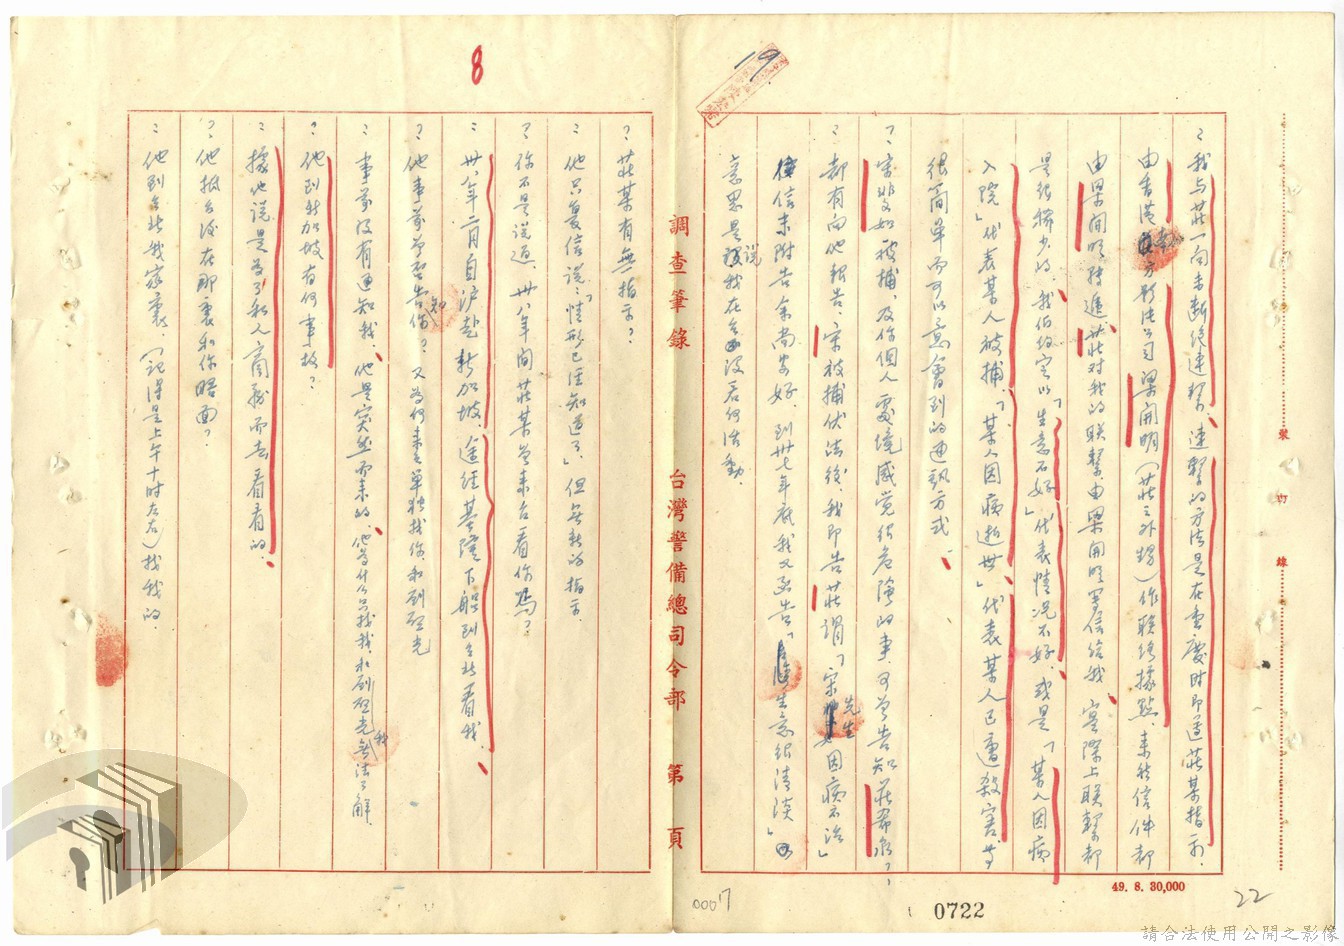 ：我与莊一向未断絕連繫、連繫的方法是在重慶时即遵莊某指示、
由香港東方影片公司梁開明（莊之外甥）作联絡據點、来往信件都
由梁開明转遞、莊对我的联繫由梁開明署信給我、实際上联繫都
是很稀少的、我们约定以「生意不好」代表情况不好、或是「某人因病
入院」代表某人被捕、「某人因病逝世」代表某人已遭殺害、等
很简单而可以意會到的通訊方式、
？宋斐如被捕、及你個人處境感觉很危險的事、可曾告知莊希泉？
：都有向他報告、宋被捕伏法後、我即告莊謂「宋先生因病不治」
信末附告余尚安好、到卅七年底我又函告「生意很清淡」
意思是說我在台没若何活動、
？莊某有無指示？
：他只复信說、「情形已經知道了」、但無新的指示、
？你不是说過、卅八年間莊某曾来台看你嗎？
：卅八年二月自沪赴新加坡、途经基隆下船到台北看我、
？他事前曾否告知你？又為何来单独找你、和劉啟光
：事前没有通知我、他是突然而来的、他為什么只找我、和劉啟光我無法了解、
？他到新加坡有何事故？
：據他说是為了私人商務而去看看的、
？他抵台後在那裏和你晤面？
：他到台北我家裏、（記得是上午十时左右）找我的、
調查筆錄　台灣警備總司令部　第　頁
8
19
裝　訂　線
49. 8. 30,000
0007
0722
22
請合法使用公開之影像